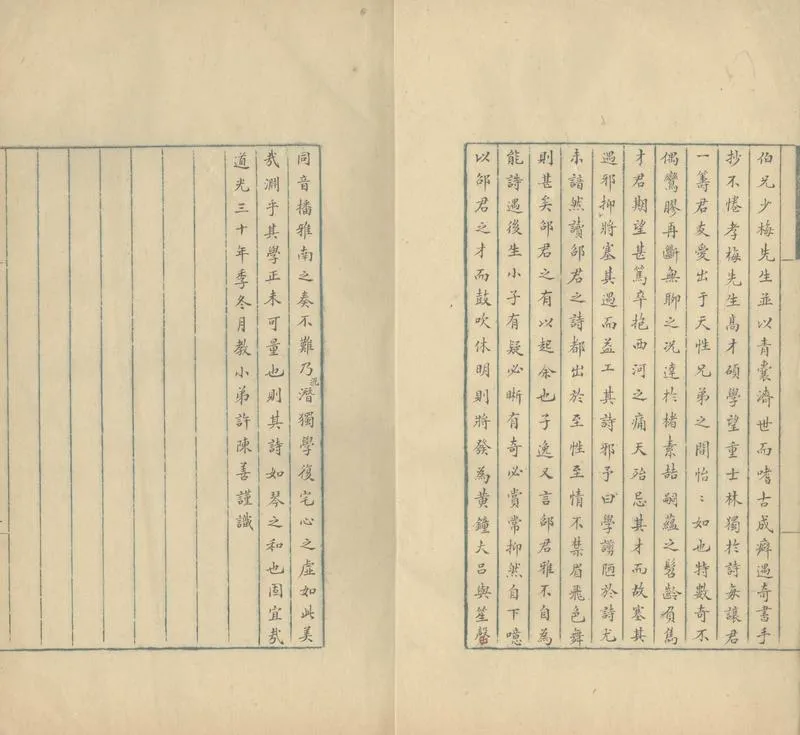 伯兄少梅先生並以青囊濟世而嗜古成癖遇奇書手
抄不惓孝梅先生高才碩學望重士林獨於詩每讓君
一籌君友愛出于天性兄弟之間怡〻如也特數奇不
偶鸞膠再斷無聊之况達於楮素喆嗣蘊之髫齡負雋
才君期望甚篤卒抱西河之痛天殆忌其才而故塞其
遇邪抑將塞其遇而益工其詩邪予曰學謭陋於詩尤
未諳然讀邰君之詩都出於至性至情不禁眉飛色舞
則甚矣邰君之有以起余也子逸又言邰君雅不自為
能詩遇後生小子有疑必晰有奇必賞常抑然自下噫
以邰君之才而鼓吹休明則將發為黃鐘大呂與笙磬
同音播雅南之奏不難乃沉潛獨學復宅心之虛如此美
哉淵乎其學正未可量也則其詩如琴之和也固宜哉
道光三十年季冬月教小弟許陳善謹識